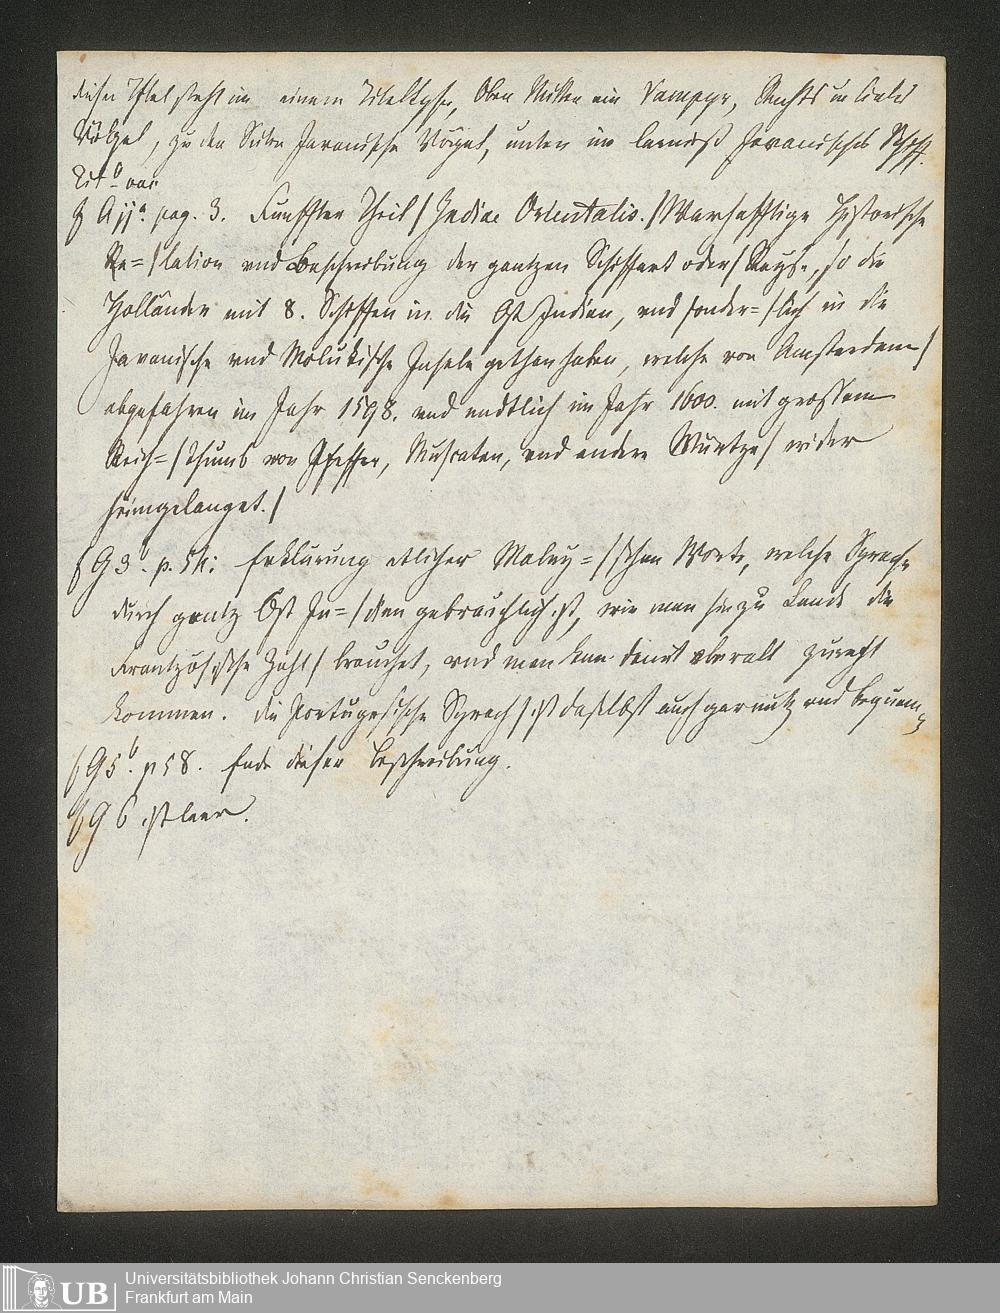 dieser Titel steht in einem Titelkpfr, Oben Mitten ein Vampyr, Rechts u links
Vögel, zu den Seiten Javanische Vögel, unten im Javanisches Schiff.
Tit b vac.
f A ij a. pag. 3. Funffter Theil / Indiae Orientalis. / Warhafftige Historische
Re= / lation vnd Beschreibung der gantzen Schiffart oder / Reyse, so die
Holländer mit 8. Schiffen in die Ost Indien, vnd sonder= / lich in die
Javanische vnd Molukische Inseln gethan haben, welche von Amsterdam /
abgefahren im Jahr 1598. vnd endtlich im Jahr 1600. mit grossem
Reich= / thumb von Pfeffer, Muscaten, vnd andere Würtze / wider
heimgelanget. /
f G 3 b. p. 54: Erklärung etlicher Maley= / schen Worte, welche Sprache
durch gantz Ost In= / dien gebräuchlich ist, wie man hie zu Lande die
Frantzösische / brauchet, vnd man kan damit vberall zurecht
kommen. Die Portugesische Sprach / ist daselbst auch gar nutz vnd bequem
f G 5 b. p 58. Ende dieser Beschreibung.
f G 6 ist leer.
UB
Universitätsbibliothek Johann Christian Senckenberg
Frankfurt am Main